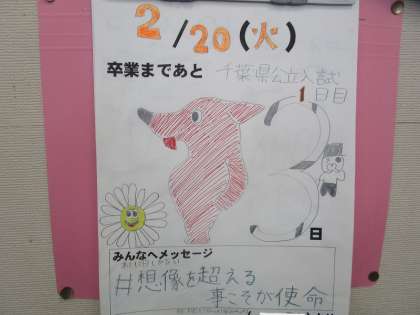 2/20(火)
卒業まであと
千葉県公立入試
1日目
13
日
みんなへメッセージ
#想像を超える
事こそが使命